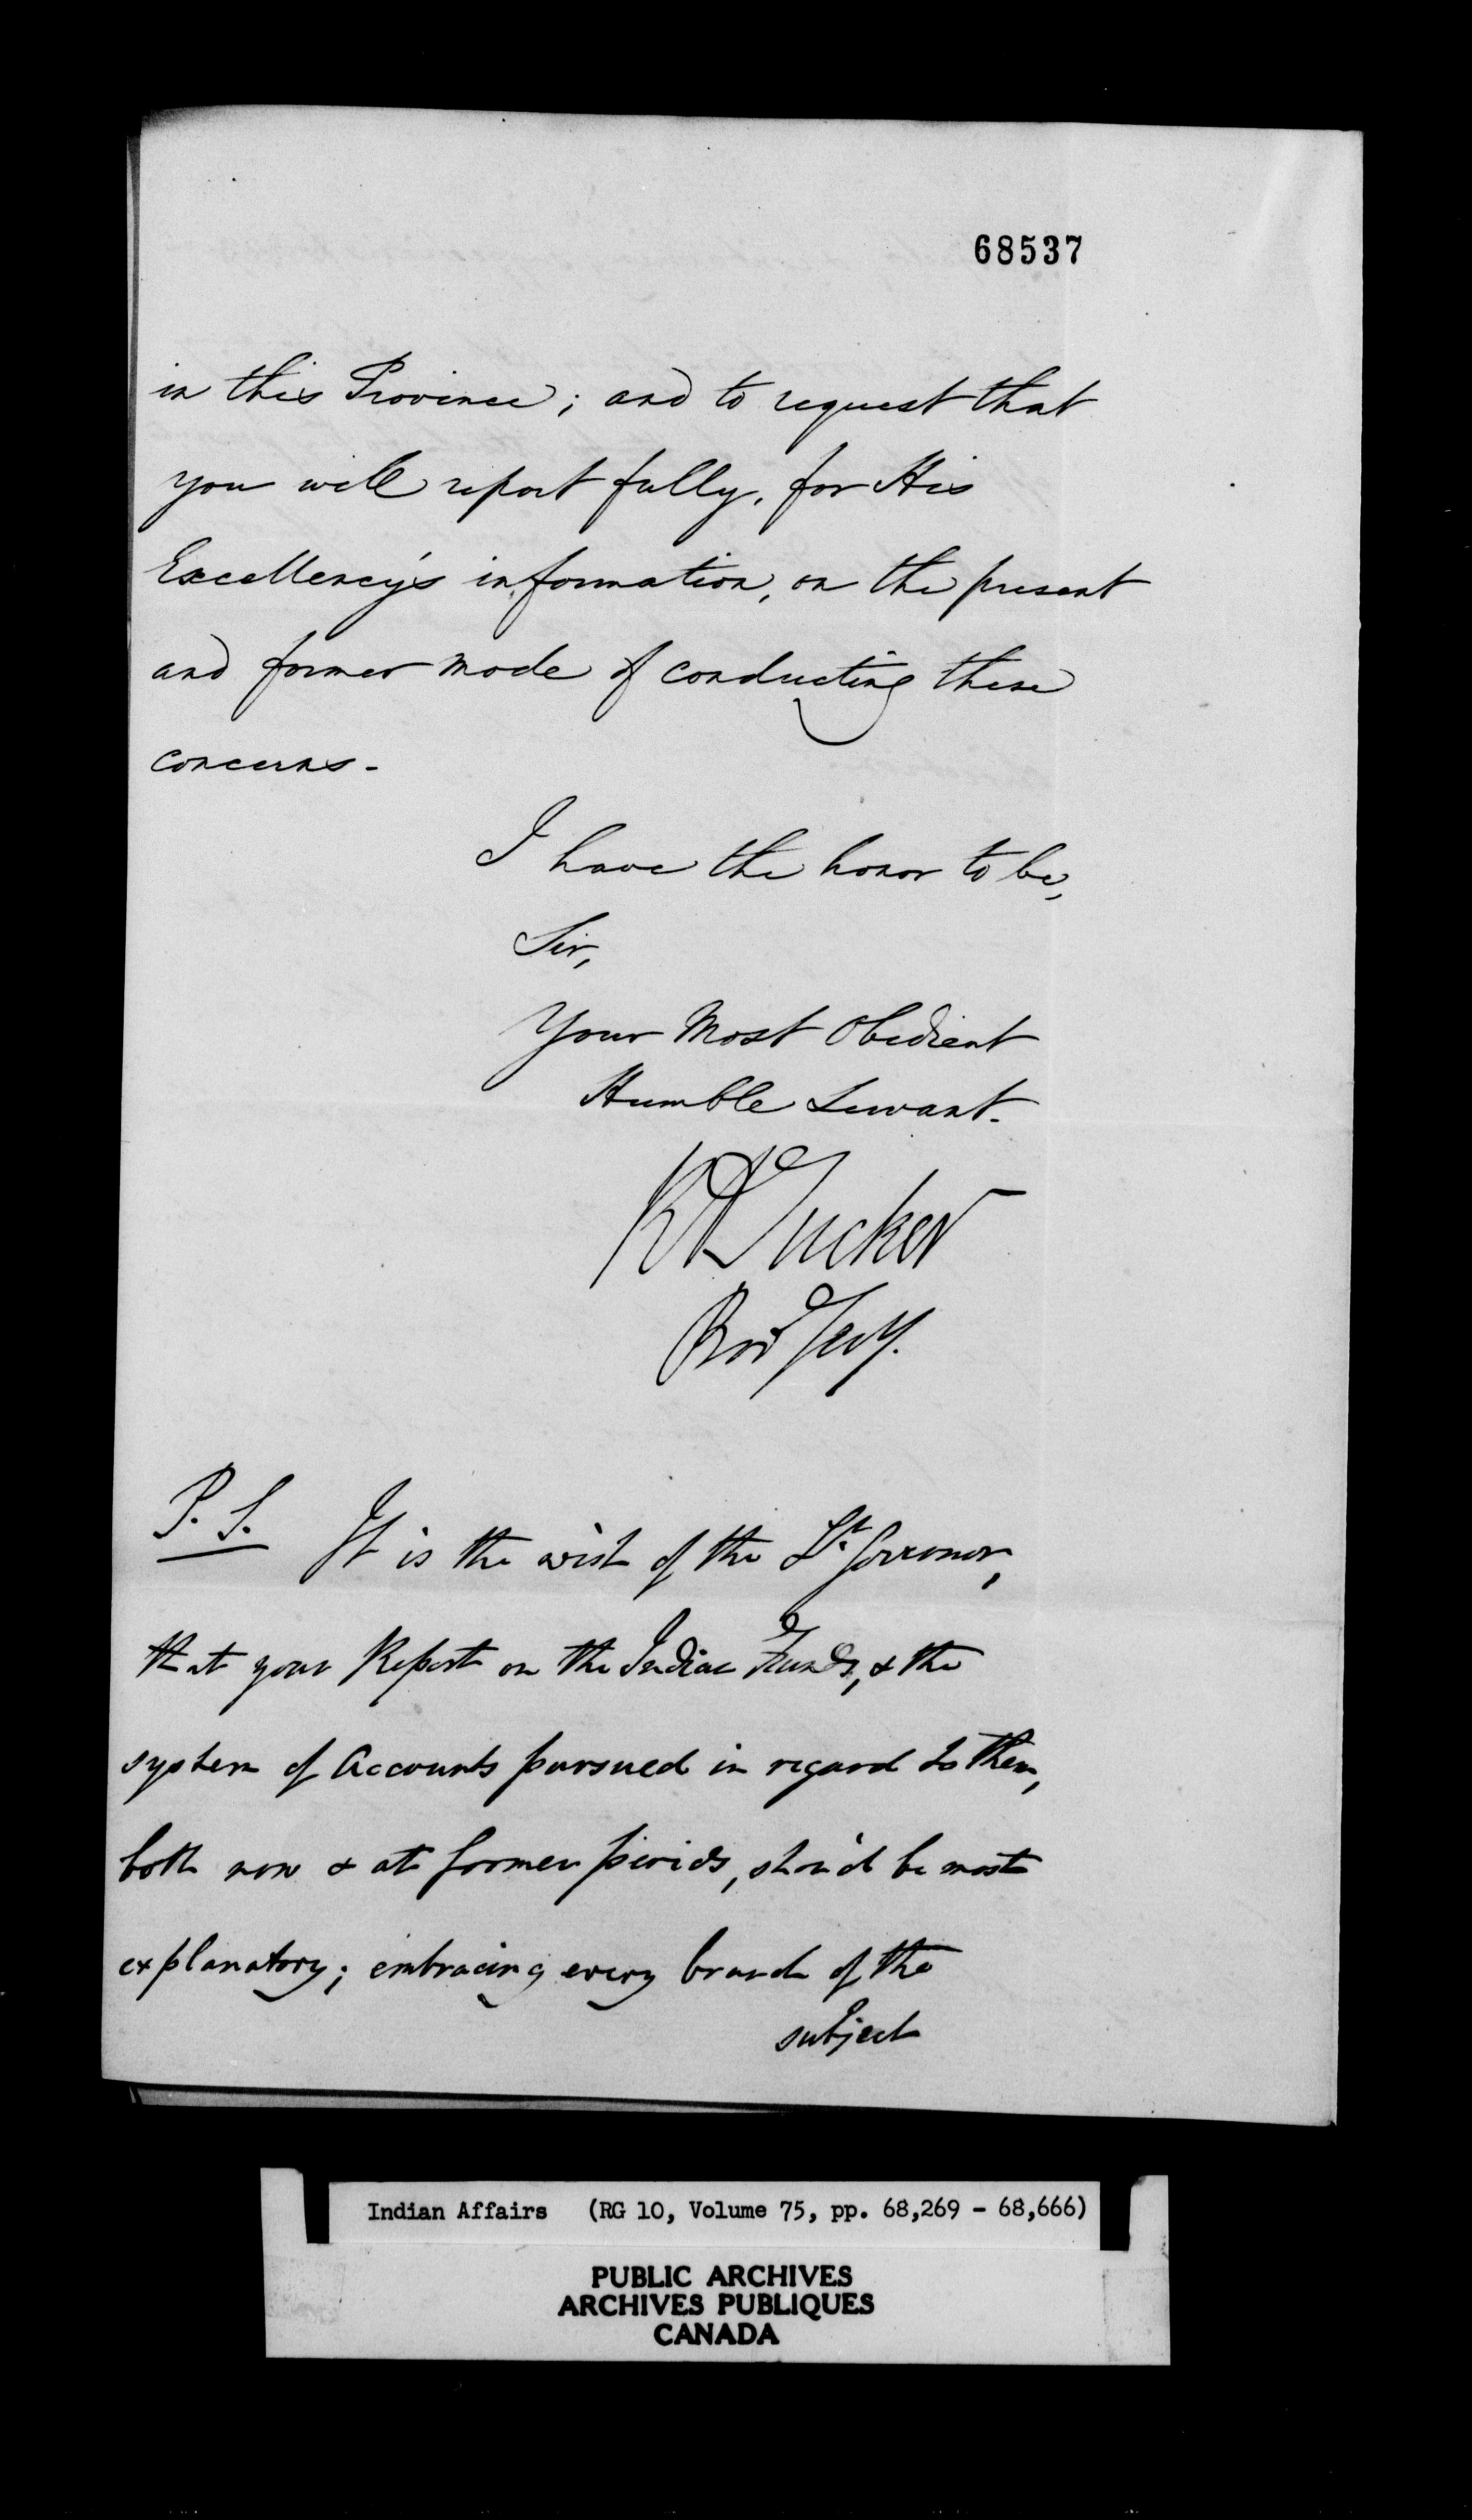 68537
in this Province; and to request that
you will report fully, for His
Excellency's information, on the present
and former mode of conducting these
concerns.
I have the honor to be,
Sir,
Your Most Obedient
Humble Servant.
R A Tucker
Prov Secy.
P. S. It is the wish of the Lt. Governor,
that your Report on the Indian Funds, & the
system of Accounts pursued in regard to them,
both now & at former periods, shou'd be most
explanatory; embracing every branch of the
subject
Indian Affairs (RG 10, Volume 75, pp. 68,269 - 68,666)
PUBLIC ARCHIVES
ARCHIVES PUBLIQUES
CANADA